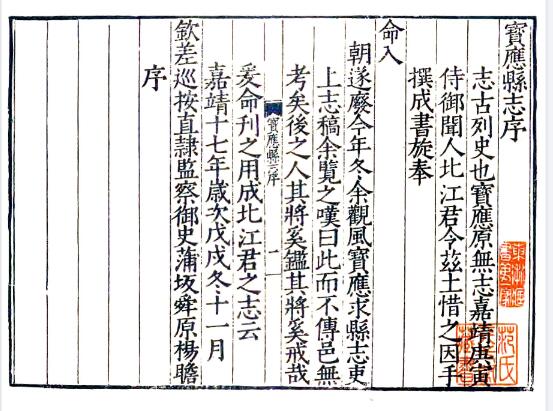 寶應縣志序
志古列史也寶應原無志嘉靖庚寅
侍御聞人北江君令茲土惜之因手
撰成書旋奉
命入
朝遂廢今年冬余觀風寶應求縣志吏
上志稿余覽之嘆曰此而不傳邑無
考矣後之人其將奚鑑其將奚戒哉
寶應縣序
爰命刊之用成北江君之志云
嘉靖十七年歲次戊戌冬十一月
欽差巡按直隸監察御史蒲坂舜原楊瞻
序
范氏